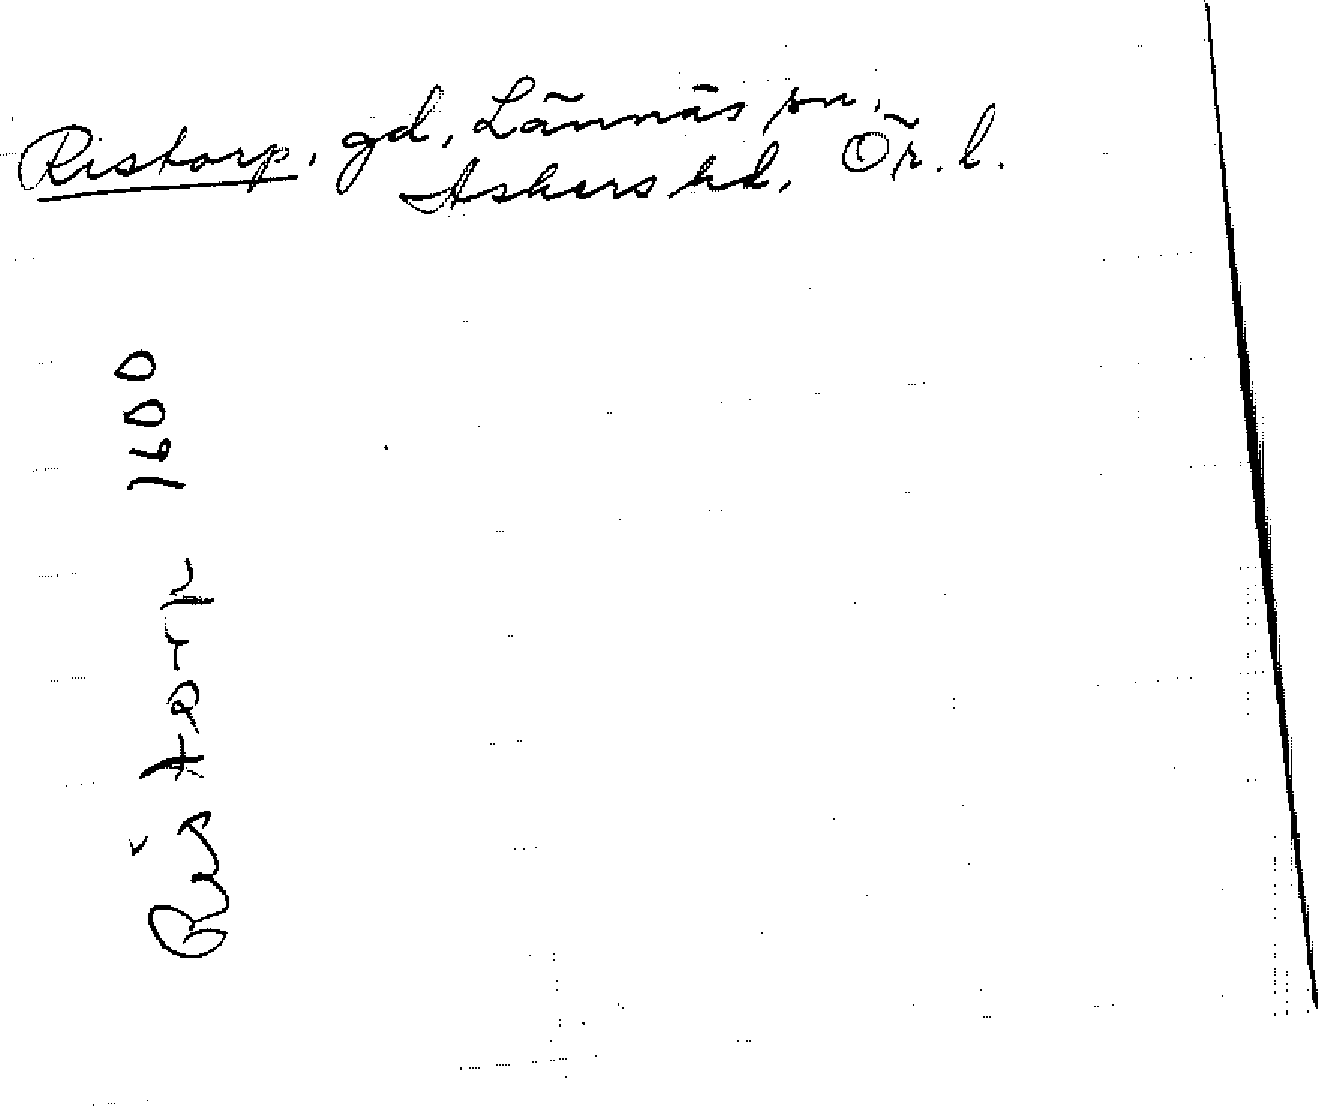 Ristorp, gd, Lännäs sn,
Askers hd, Ör. l.
Ristorp 1600